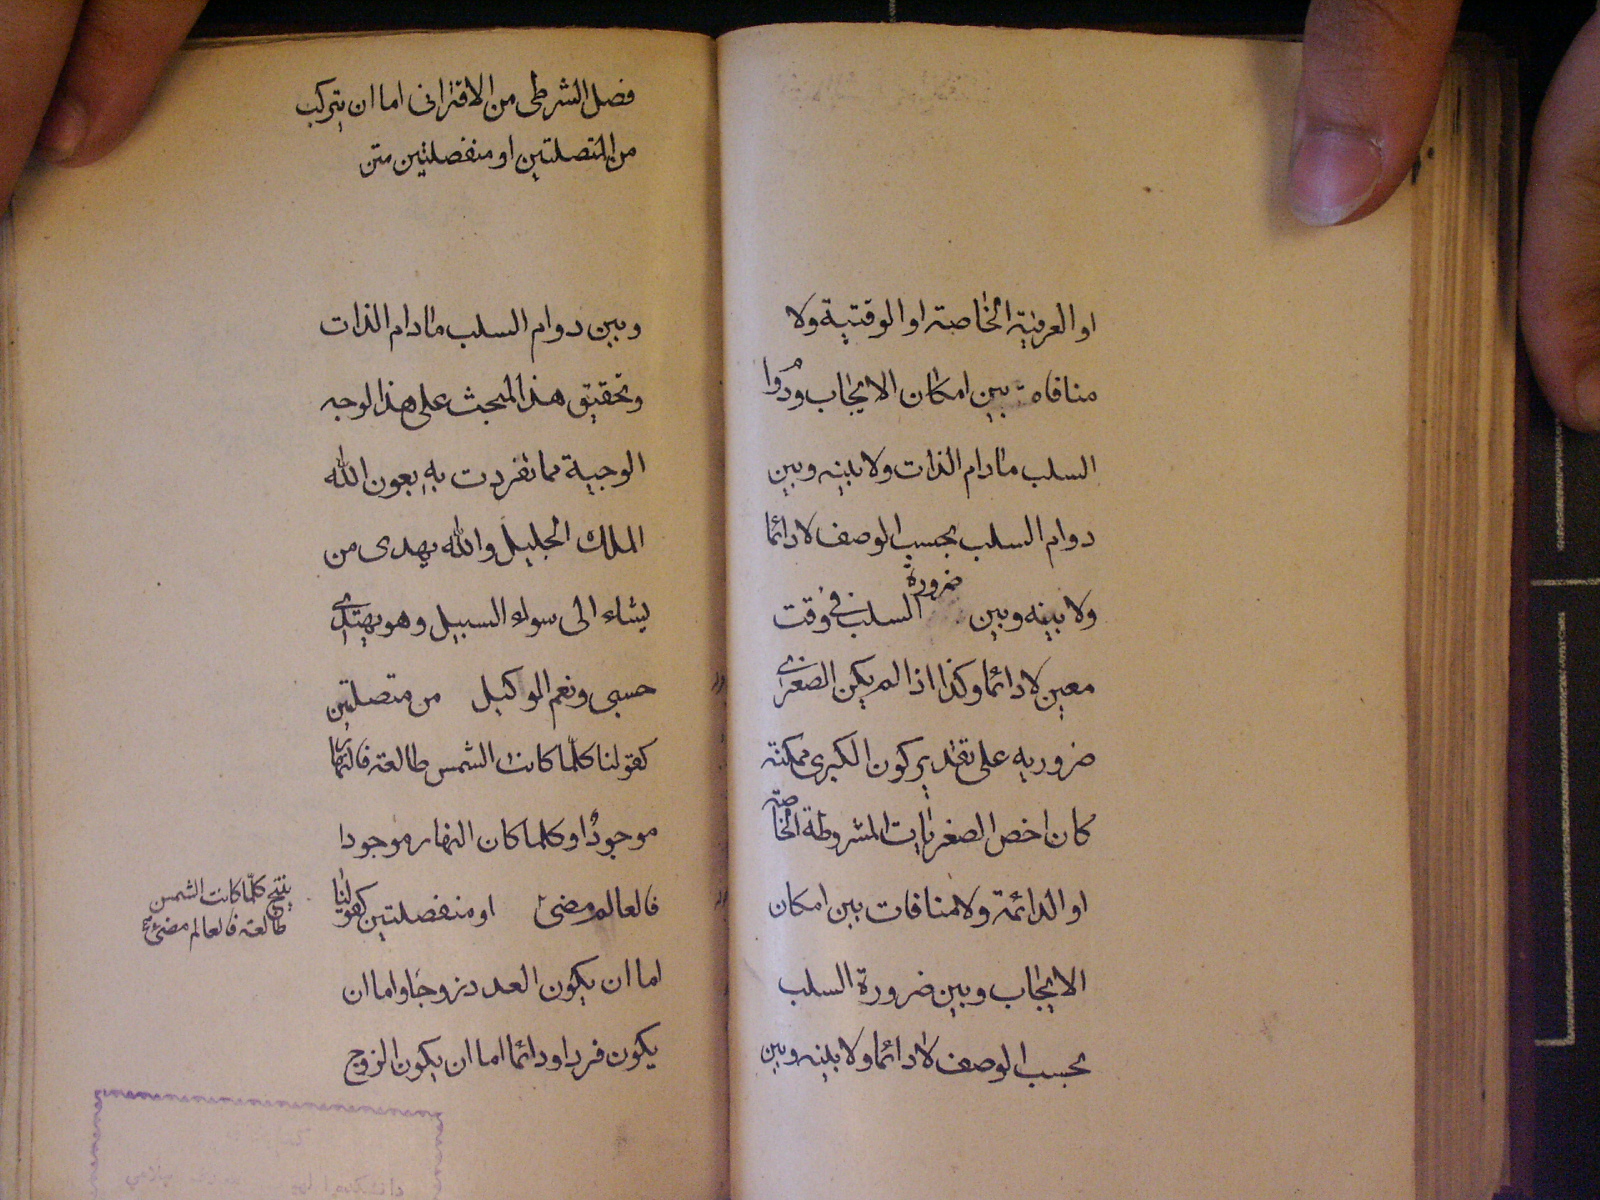 او العرفیة الخاصة او الوقتیة ولا
منافاة بین امکان الایجاب ودوام
السلب مادام الذات ولا بینه وبین
دوام السلب بحسب الوصف لا دائما
ولا بینه وبین ضرورة السلب فی وقت
معین لا دائما وکذا اذا لم یکن الصغری
ضروریه علی تقدیر کون الکبری ممکنة
کان اخص الصغریات المشروطة الخاصة
او الدائمة ولا منافات بین امکان
الایجاب وبین ضرورة السلب
بحسب الوصف لا دائما ولا بینه وبین
فصل الشرطی من الاقترانی اما ان یترکب
من المتصلتین او منفصلتین متن
وبین دوام السلب مادام الذات
وتحقیق هذا المبحث علی هذا الوجه
الوجیه مما تفردت به بعون الله
الملک الجلیل والله یهدی من
یشاء الی سواء السبیل وهو یهتدی
حسبی ونعم الوکیل من متصلتین
کقولنا کلّما کانت الشمس طالعة فالنهار
موجودٌ او کلما کان النهار موجودا
فالعالم مضئ او منفصلتین کقولنا
اما ان یکون العدد زوجًا واما ان
یکون فردا ودائما اما ان یکون الزوج
ینتج کلّما کانت الشمس
طالعة فالعالم مضئ